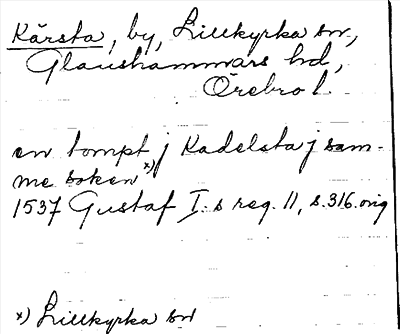 Kårsta, by, Lillkyrka sn,
Glanshammars hd,
Örebro l.
en tompt j Kadelsta j sam-
me soken x)
1537 Gustaf I:s reg. 11, s. 316. orig
x) Lillkyrka sn